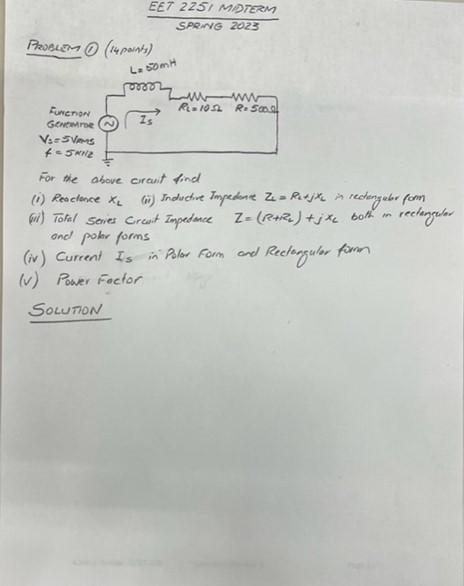 EET 2251 MIDTERM
SPRING 2023
PROBLEM ① (14 points)
L = 50mH
RL = 10Ω R = 500Ω
FUNCTION
GENERATOR
Is
Vs = 5 VRMS
f = 5 KHZ
For the above circuit find
(i) Reactance XL (ii) Inductive Impedance ZL = RL + jXL in rectangular form
(iii) Total Series Circuit Impedance Z = (R+RL) + jXL both in rectangular
and polar forms
(iv) Current Is in Polar Form and Rectangular form
(v) Power Factor
SOLUTION